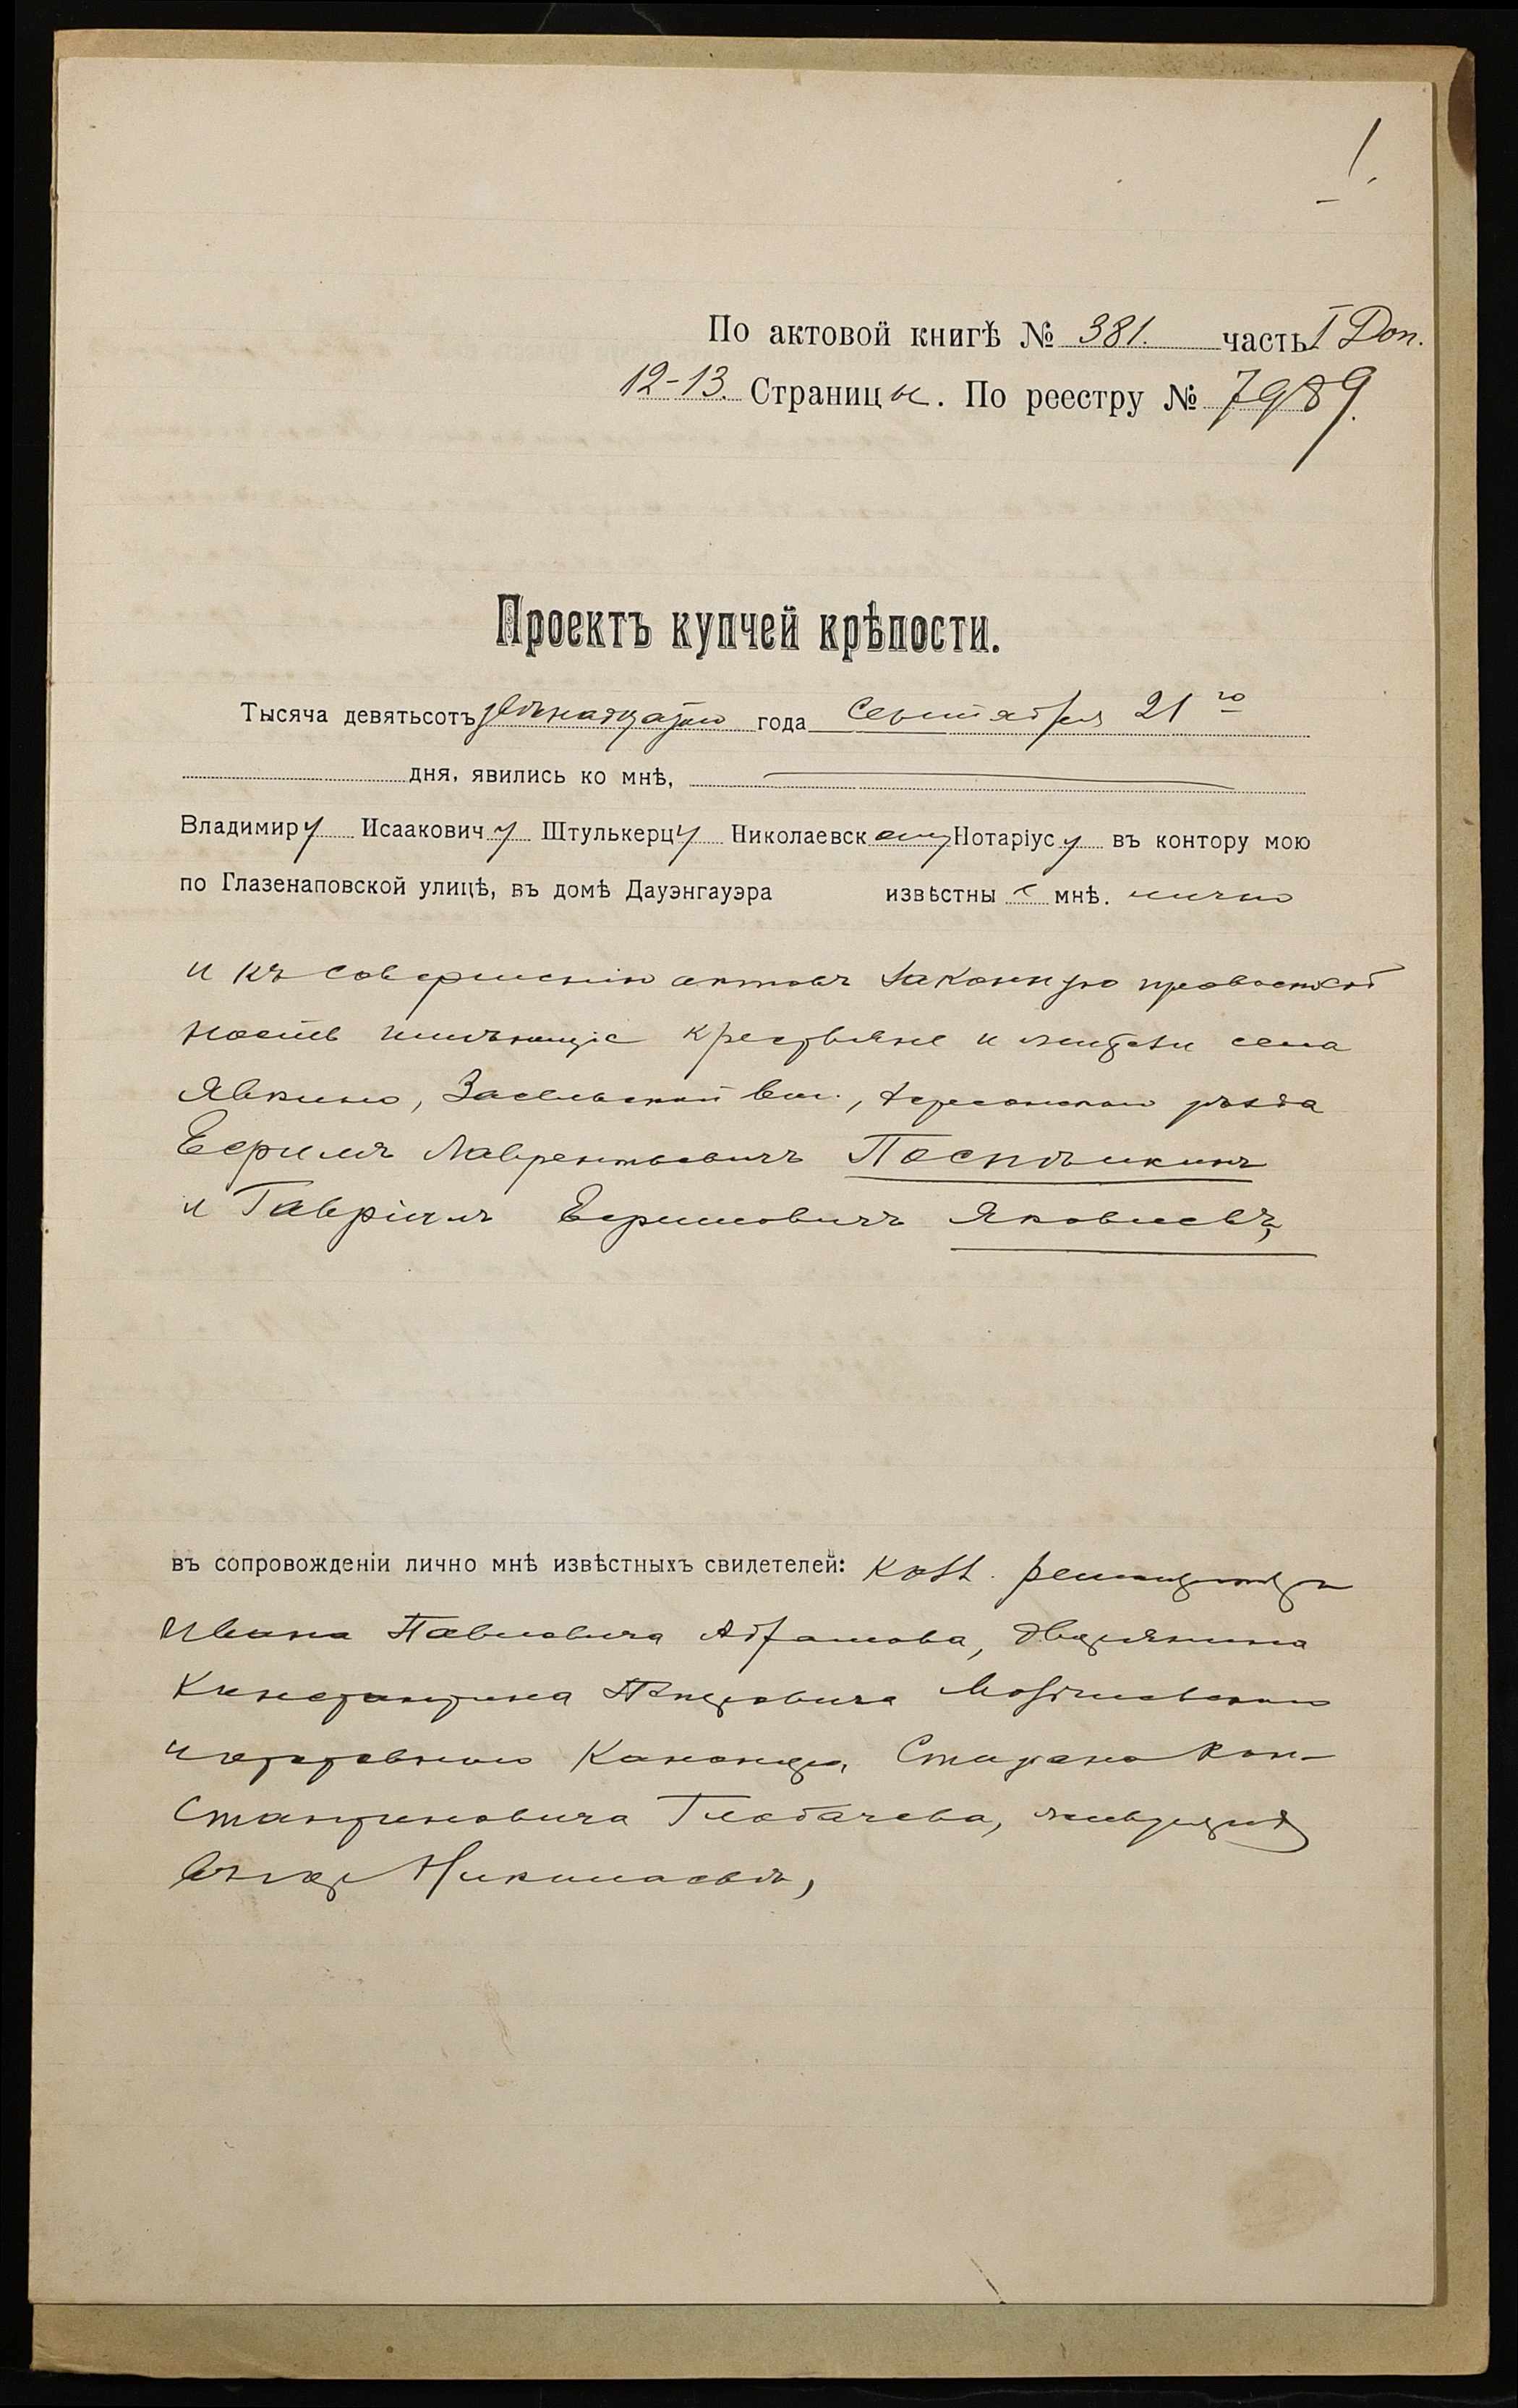 1.
По актовой книгѣ № 381. часть I Доп.
12-13. Страницы. По реестру № 7989.
Проектъ купчей крѣпости.
Тысяча девятьсотъ двѣнадцатаго года Сентября 21 го
дня, явились ко мнѣ,
Владимиру Исааковичу Штулькерцу Николаевскому Нотаріусу въ контору мою
по Глазенаповской улицѣ, въ домѣ Дауэнгауэра извѣстные мнѣ. лично
и къ совершенію актовъ законную правоспособ
ность имѣющіе крестьяне и жители села
Явкино, Засельской вол., Херсонскаго уѣзда
Ефимъ Лаврентьевичъ Поспѣшкинъ
и Гавріилъ Ефимовичъ Яковлевъ,
въ сопровожденіи лично мнѣ извѣстныхъ свидетелей:
Ивана Павловича Абрамова, дворянина
Константина Петровича
и Канонира Степана Кон-
стантиновича Глобачева, живущихъ
въ гор. Николаевѣ,